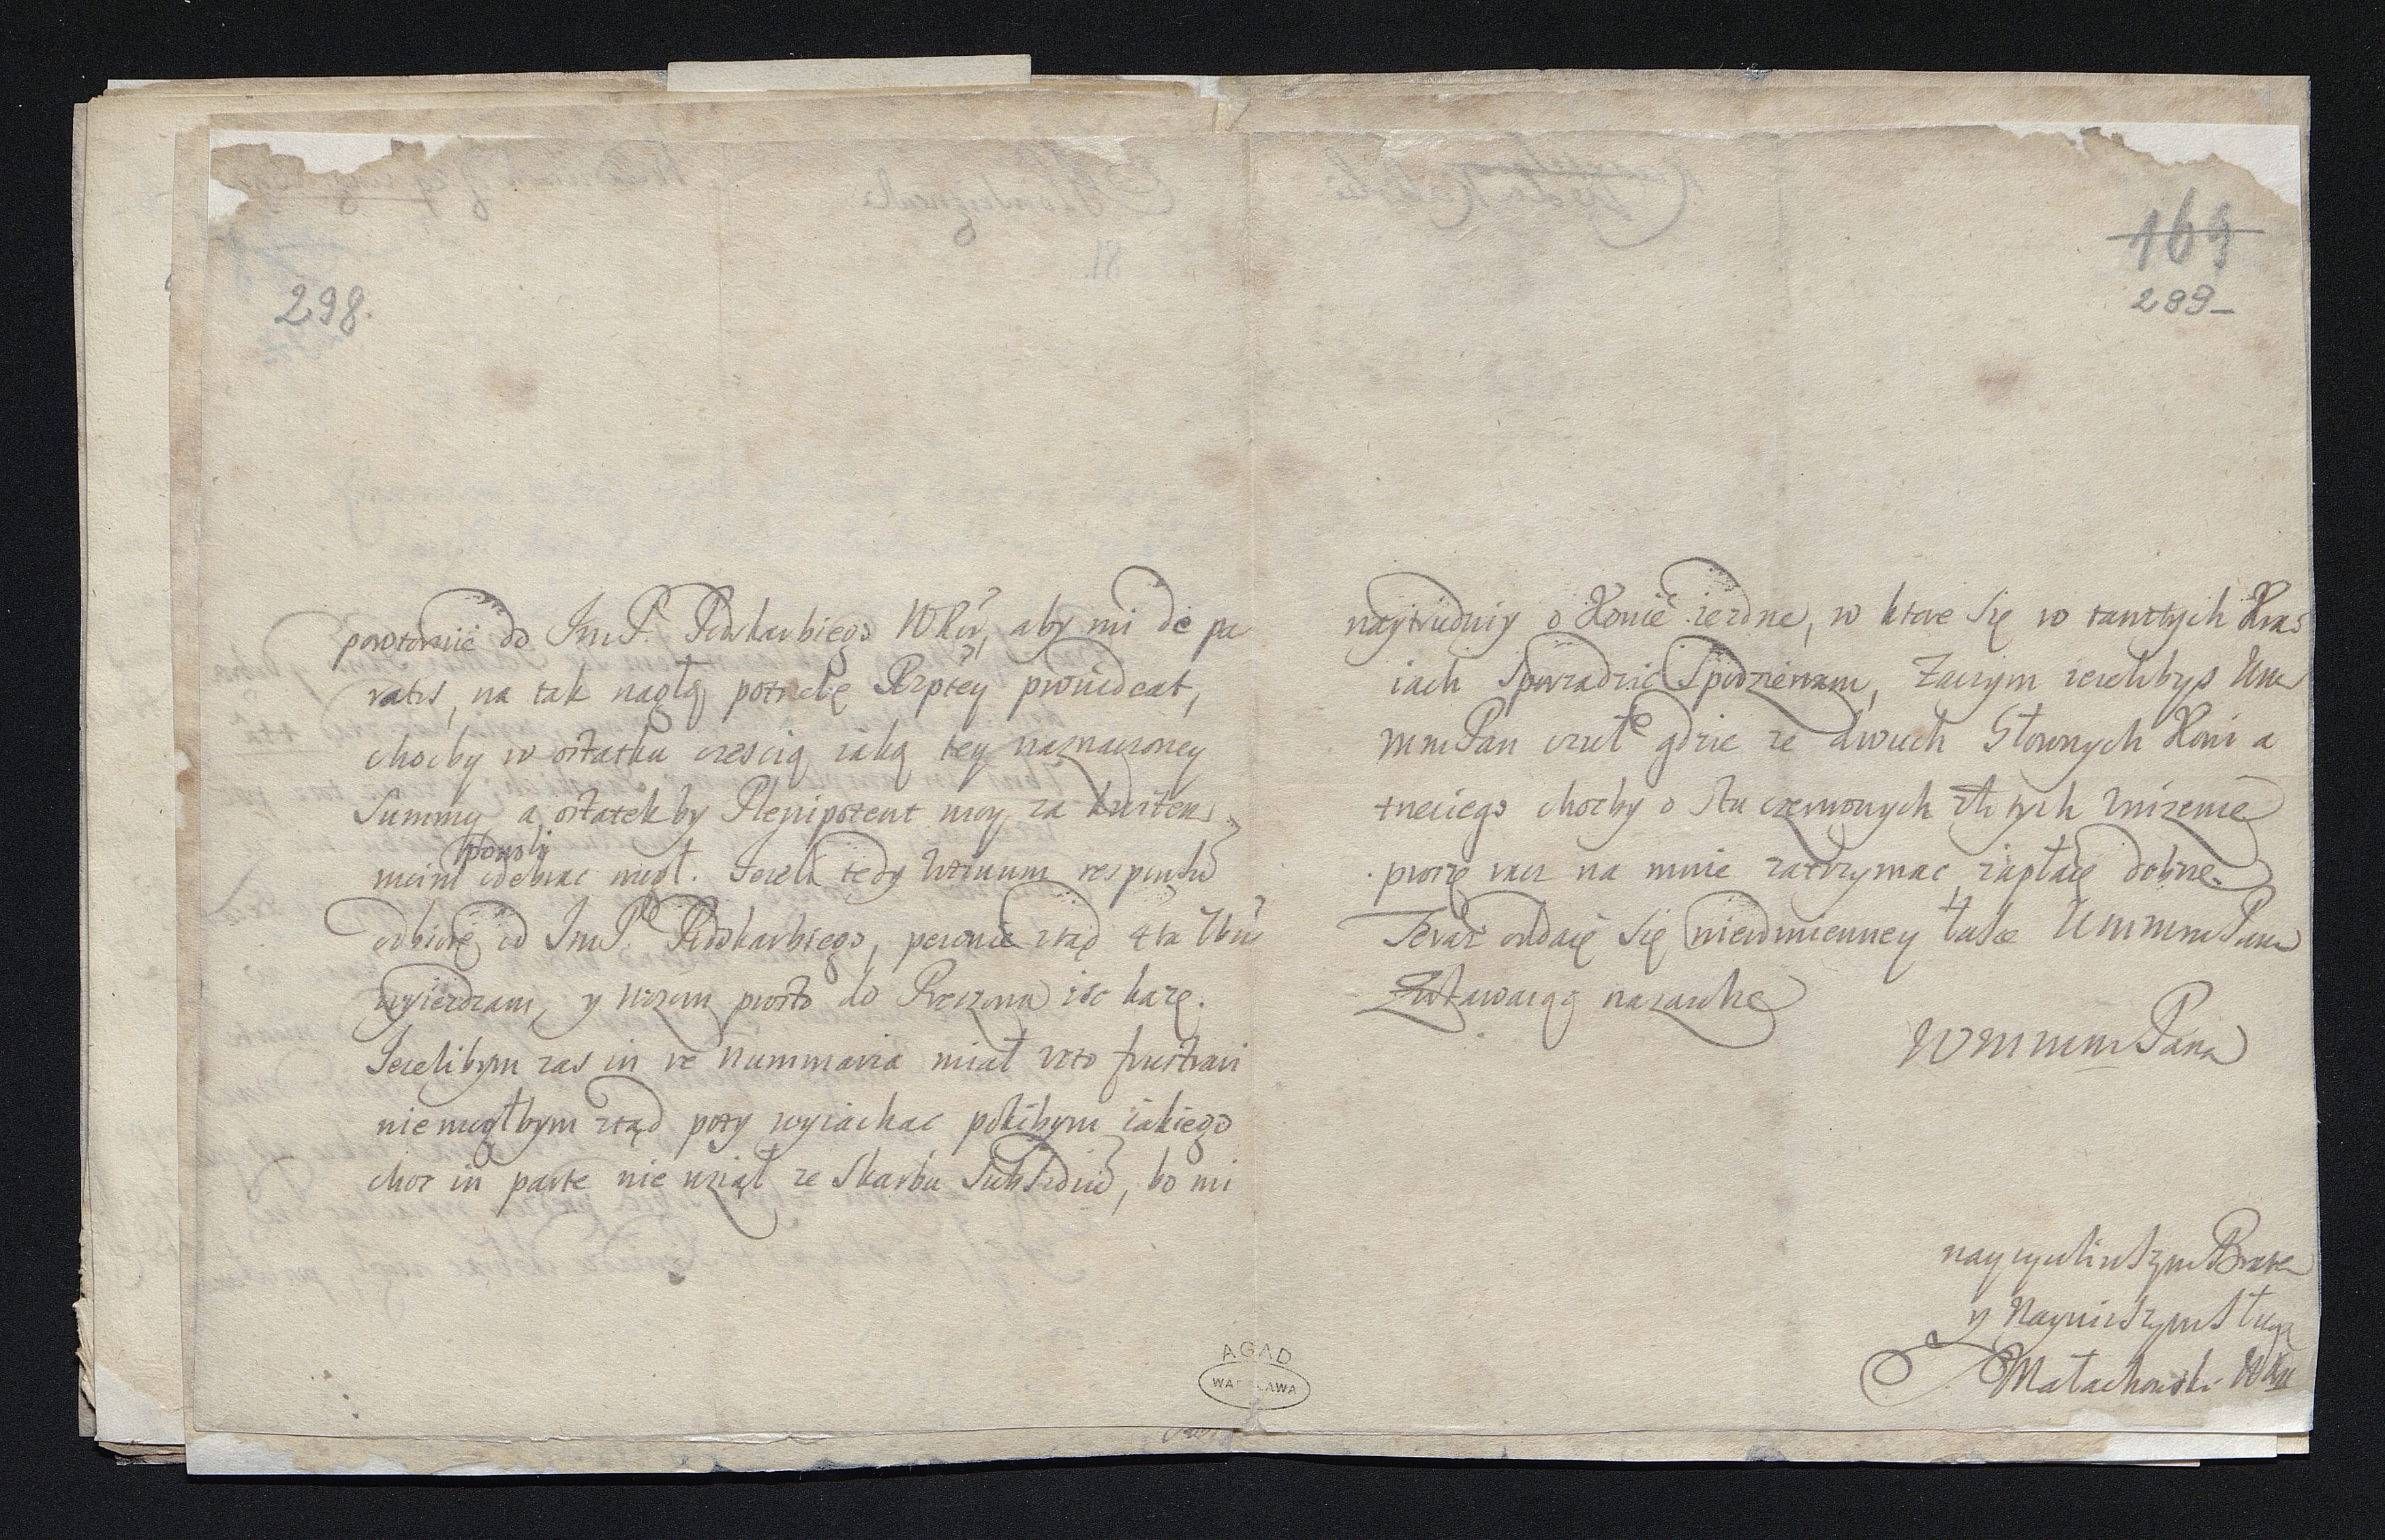 298.
powtornie do ImP. Podskarbiego WKo, aby mi de pa
ratis, na tak nagłą potrzebę Rzptey provideat,
choćby w ostatku częscią iaką tey naznaczoney
Summy a ostatek by Plenipotent moy za kwitem
powoli
moim odebrac mogł. Jezeli tedy bonum responsu
odbiorę od ImP. Podskarbiego, pewnie ztąd 4ta
wyiezdzam, y wozom prosto do isc karzę.
Jezelibym zas in re nummaria miał voto frustrari
niemogłbym ztąd poty wyiachac pokibym iakiego
choc in parte nie wziął ze Skarbu Subsidiu, bo mi
169
289-
naytrudniy o Konie iezdne, w ktore się w tamtych Kra
iach sporządzic spodziewam, Zaczym iezelibys
WmmPan czuł gdzie ze dwuch Stawnych Koni a
trzeciego chocby o stu czerwonych złtych unizenie
proszę racz na mnie zatrzymac, zapłacę dobrze.
Teraz oddaię się nieodmienney łasce WmmmPana
Zostawaiąc nazawsze
WmmmPana
nayzyczliwszym Bratem
y Nayniszszym Sługą
Małachowski
AGAD
WARSZAWA